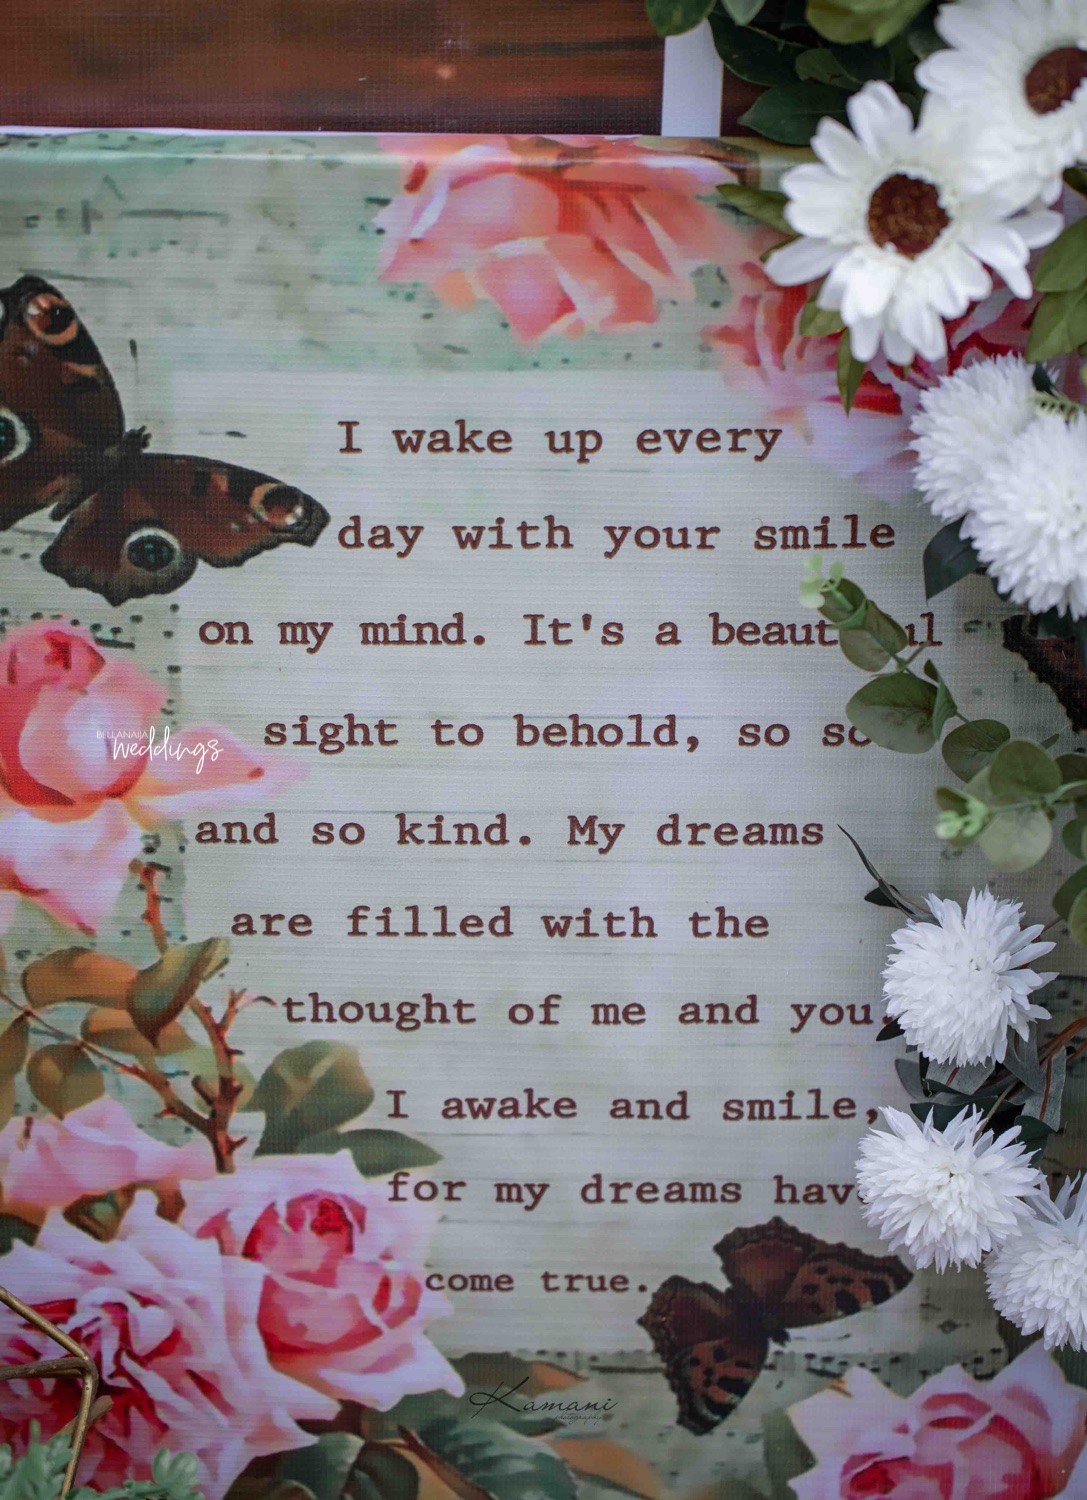 I wake up every
day with your smile
on my mind. It's a
sight to behold, so
and so kind. My dreams
are filled with the
thought of me and you.
I awake and smile,
for my dreams
come true.
BELLANAIJA
weddings
Kamani
photography